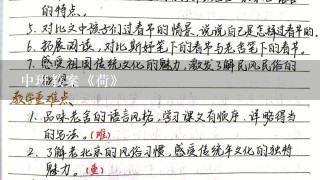 的特点。
5. 对比文中孩子们过春节的情景,说说自己是怎样过春节的。
6. 拓展阅读,对比斯好笔下的春节与老舍笔下的春节。
7. 感受祖国传统文化的魅力,激发了解民风民俗的
中班教案《荷》
教学重难点
1. 品味老舍的语言风格,学习课文有顺序、详略得当
的写法。(难)
2. 了解老北京的风俗习惯,感受传统年文化的独特
魅力。(重)